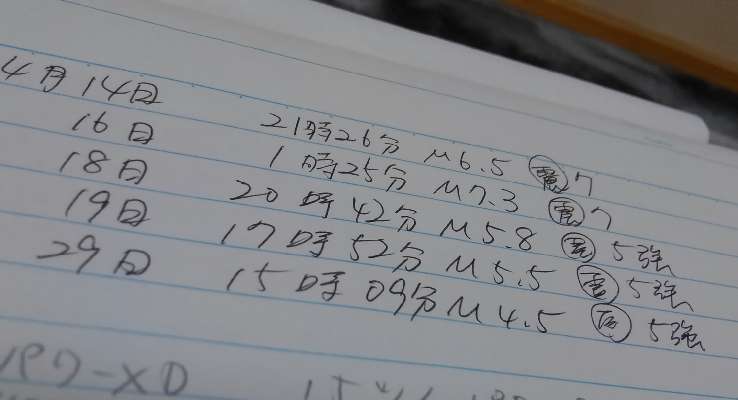 4月14日 21時26分 M6.5 震7
16日 1時25分 M7.3 震7
18日 20時42分 M5.8 震5強
19日 17時52分 M5.5 震5強
29日 15時09分 M4.5 震5強